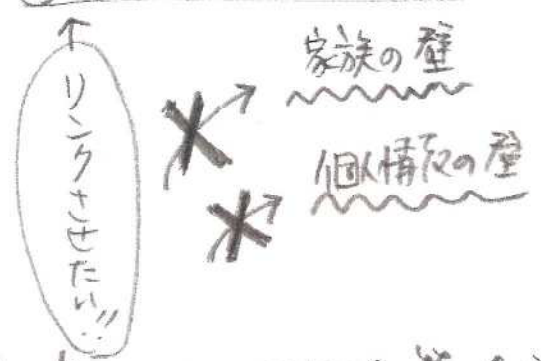 リンクさせたい!!
家族の壁
個人情報の壁